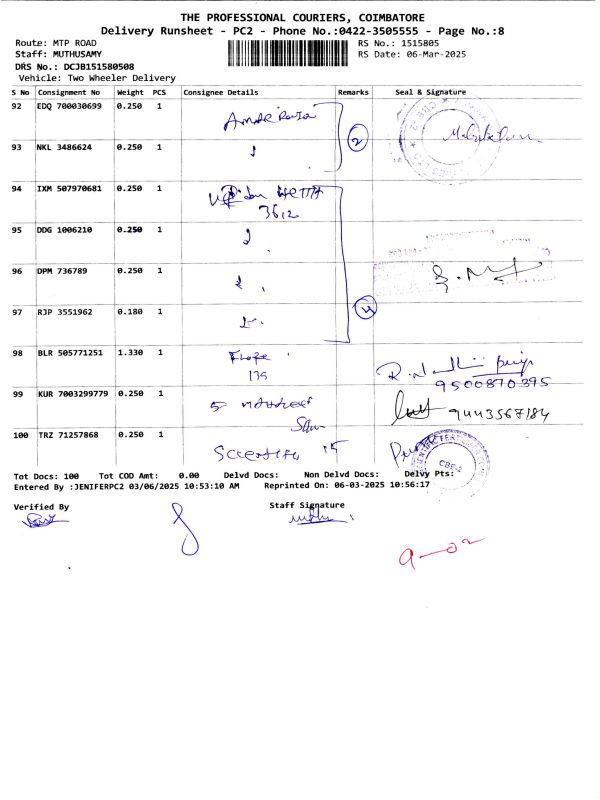 THE PROFESSIONAL COURIERS, COIMBATORE
Delivery Runsheet - PC2 - Phone No.:0422-3505555 - Page No.:8
Route: MTP ROAD RS No.: 1515805
Staff: MUTHUSAMY RS Date: 06-Mar-2025
DRS No.: DCJB151580508
Vehicle: Two Wheeler Delivery
S No Consignment No Weight PCS Consignee Details Remarks Seal & Signature
92 EDQ 700030699 0.250 1 2
93 NKL 3486624 0.250 1
94 IXM 507970681 0.250 1
3612
95 DDG 1006210 0.250 1
96 DPM 736789 0.250 1
97 RJP 3551962 0.180 1 4
98 BLR 505771251 1.330 1
135
9500870395
99 KUR 7003299779 0.250 1 9443567184
100 TRZ 71257868 0.250 1
CBE-2
Tot Docs: 100 Tot COD Amt: 0.00 Delvd Docs: Non Delvd Docs: Delvy Pts:
Entered By :JENIFERPC2 03/06/2025 10:53:10 AM Reprinted On: 06-03-2025 10:56:17
Verified By Staff Signature
9-02